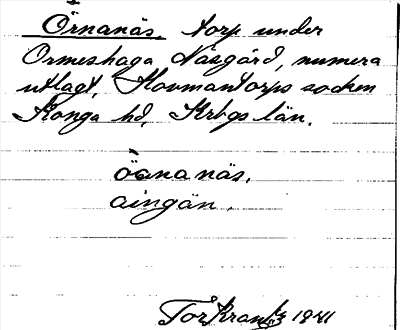 Örnanäs, torp under
Ormeshaga Näsgård, numera
utlagt, Hovmantorps socken
Konga hd, Krbgs län.
öana näs.
aingän.
Tor Krantz 1941